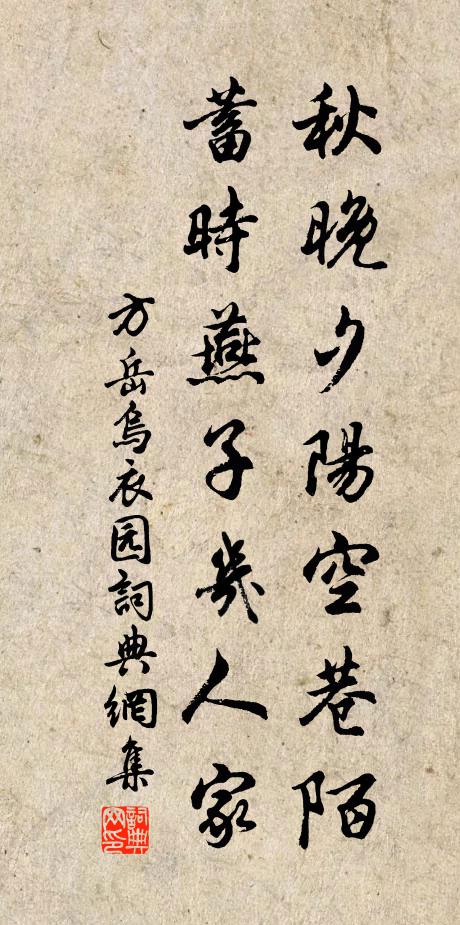 秋晚夕陽空巷陌
蓄時燕子幾人家
方岳烏衣园詞典網集
詞典网印